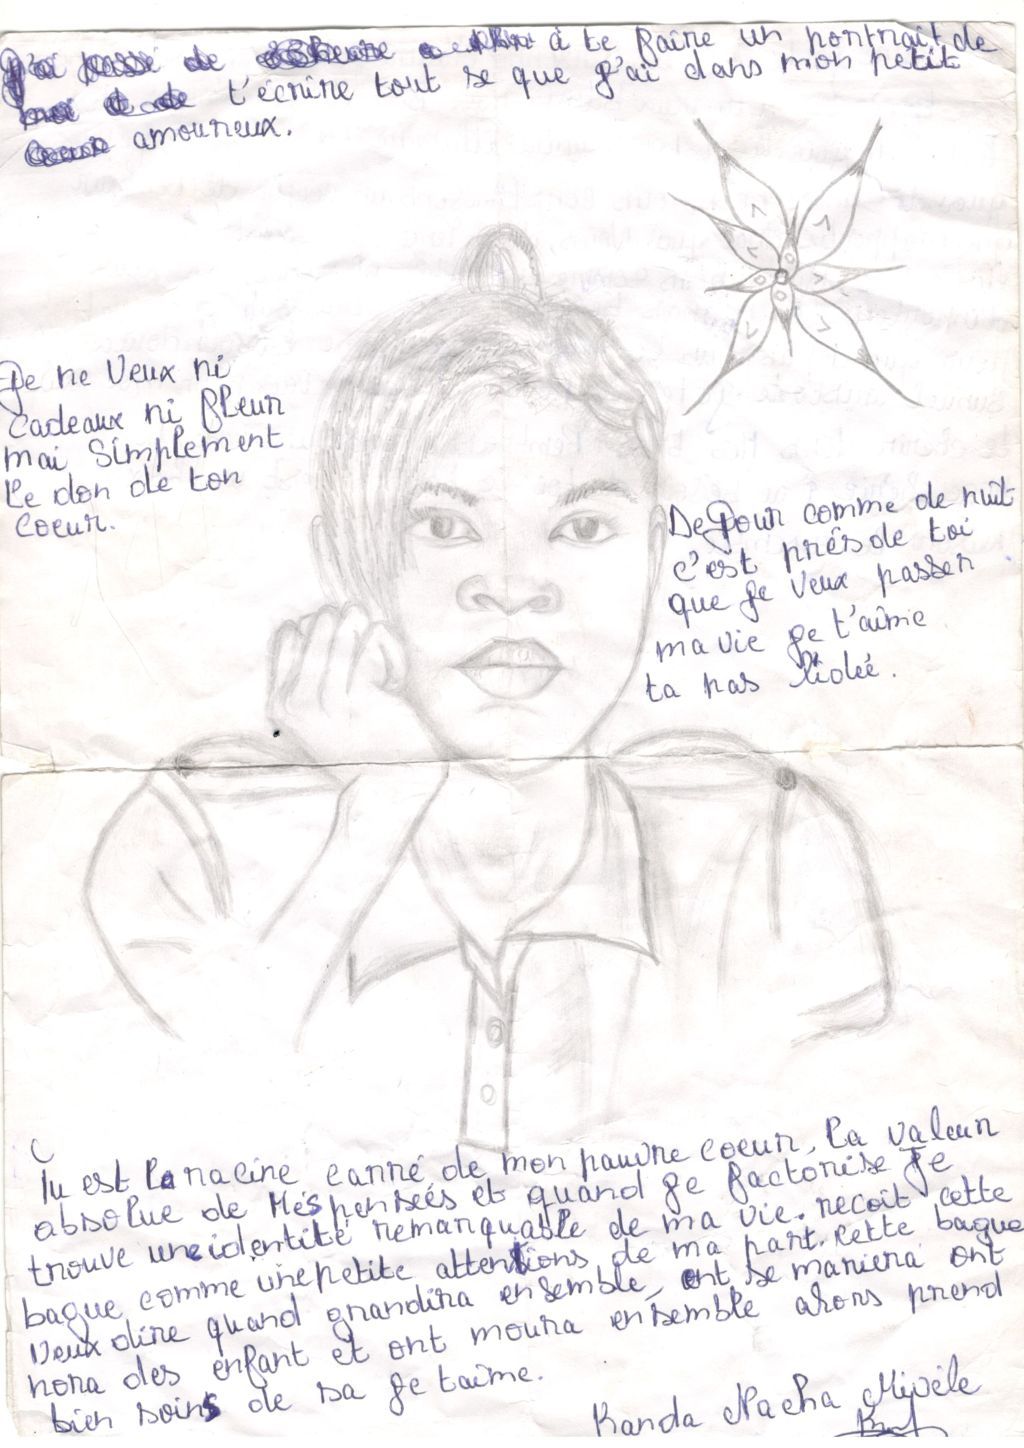 J'ai passé de à te faire un portrait de
moi de t'écrire tout se que j'ai dans mon petit
coeur amoureux.
Je ne veux ni
cadeaux ni fleur
mai simplement
le don de ton
coeur.
De jour comme de nuit
c'est prés de toi
que je veux passer
ma vie je t'aime
ta pas
Tu est la racine carré de mon pauvre coeur, la valeur
absolue de Més penseés et quand je factorise je
trouve une identité remarquable de ma vie. recoit cette
bague comme une petite attentions de ma part. cette bague
veux dire quand grandira ensemble, ont se mariera ont
nora des enfant et ont moura ensemble alrons prend
bien soins de sa je taime.
Kanda Nacha Mivèle